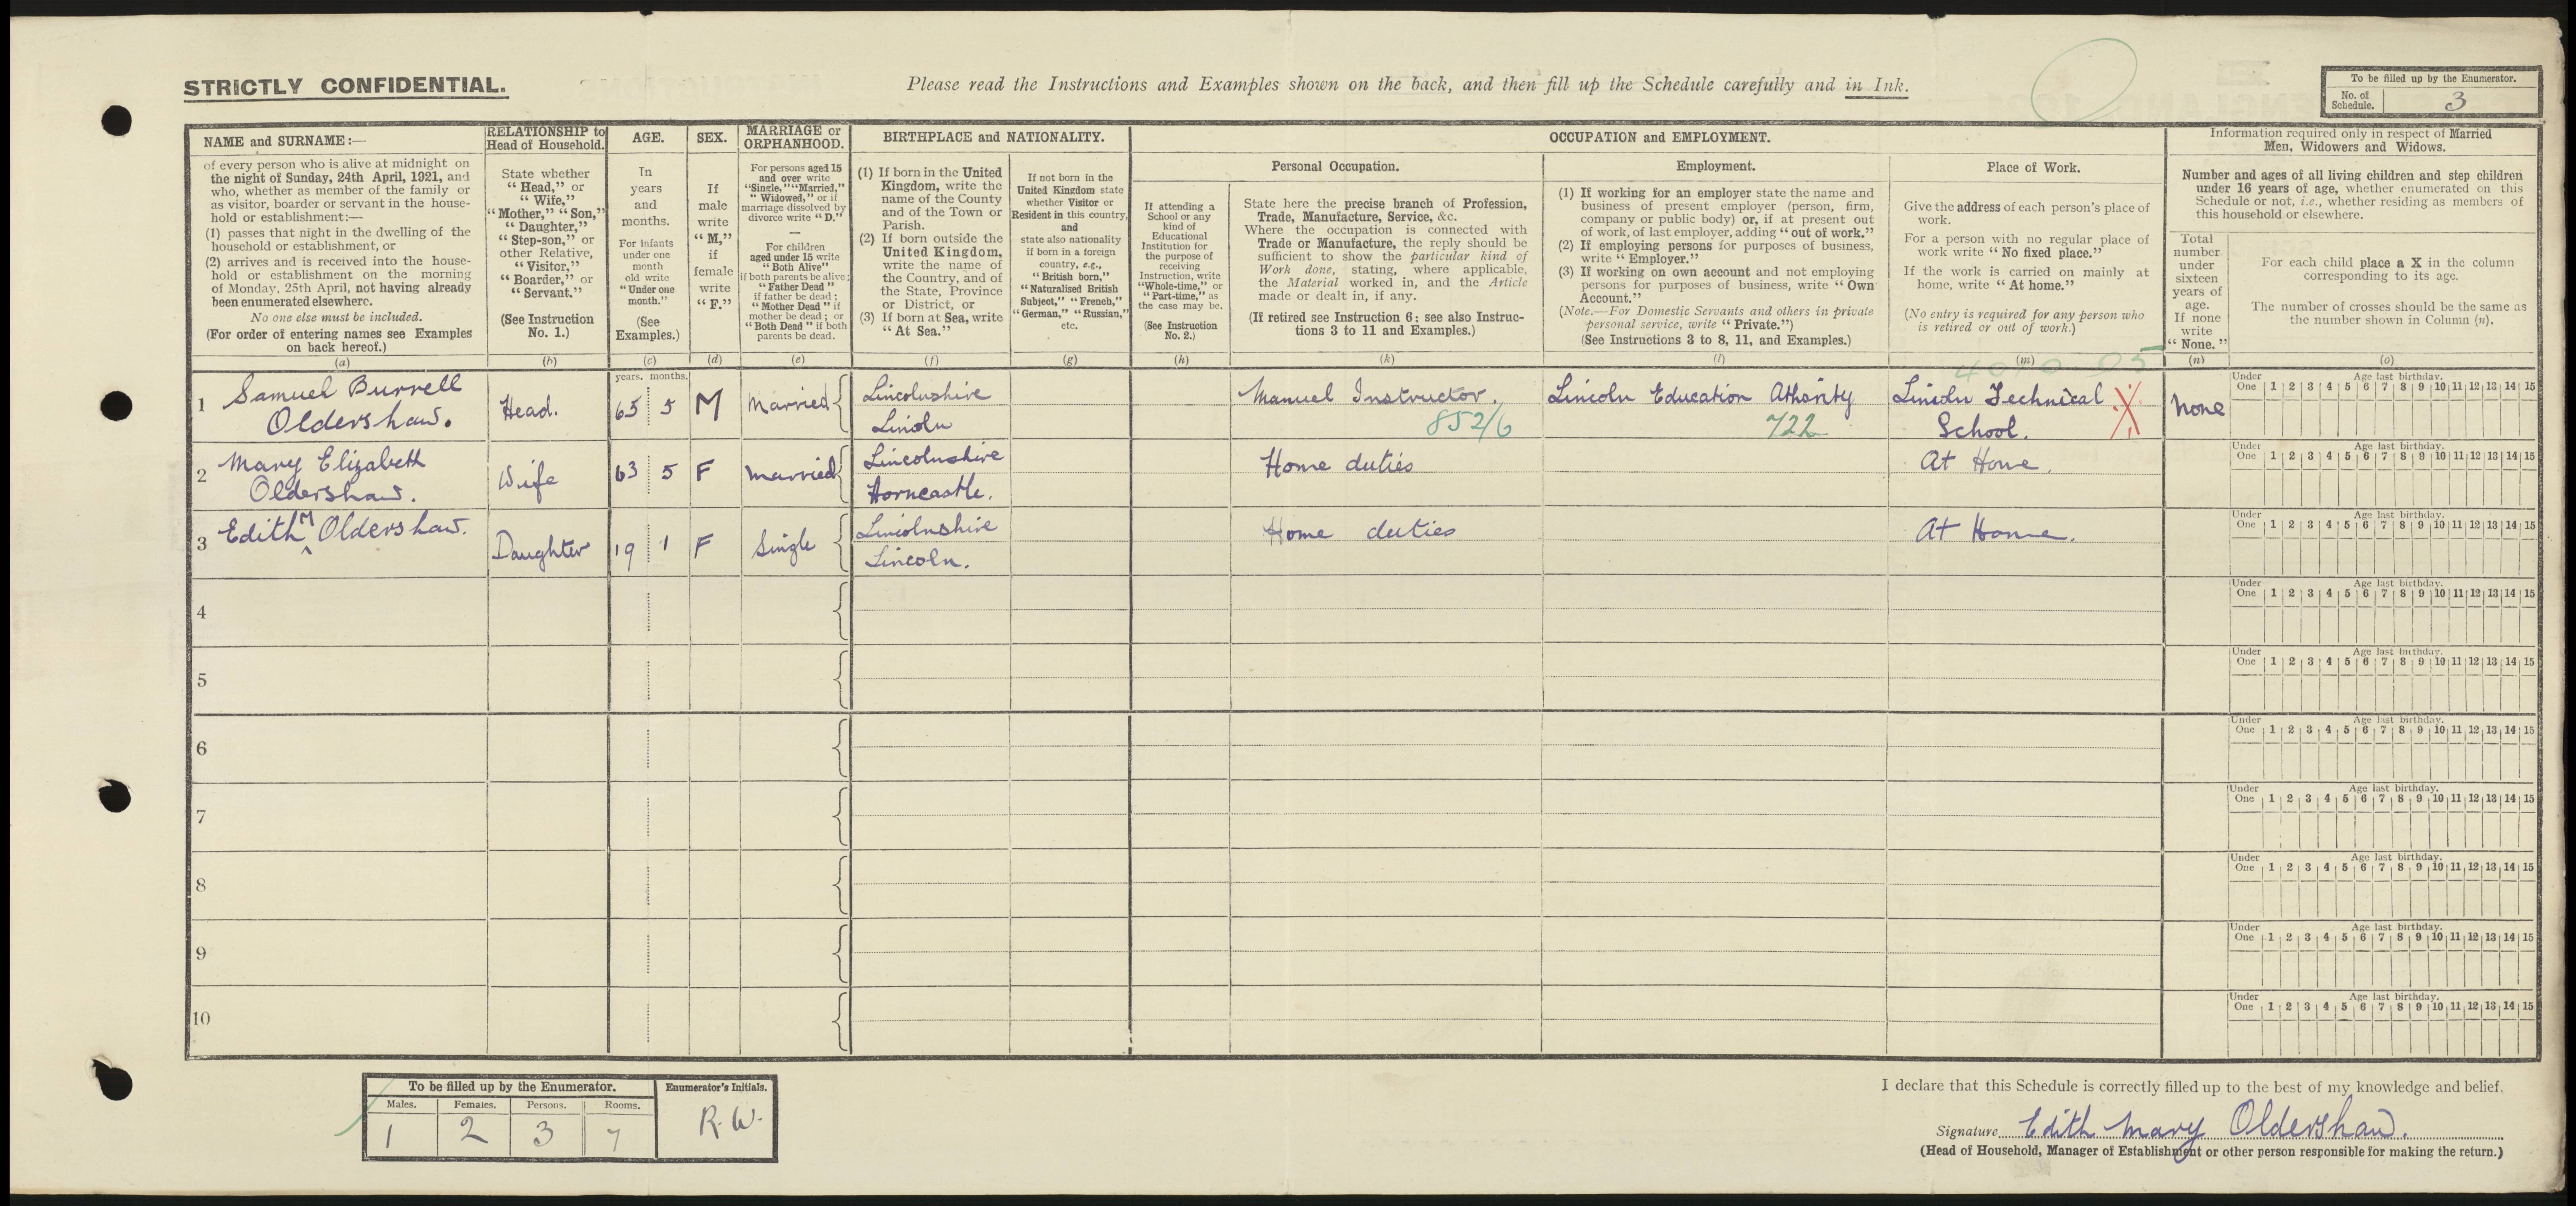 STRICTLY CONFIDENTIAL.
Please read the Instructions and Examples shown on the back, and then fill up the Schedule carefully and in Ink.
To be filled up by the Enumerator.
No. of Schedule. 3
NAME and SURNAME:—
of every person who is alive at midnight on
the night of Sunday, 24th April, 1921, and
who, whether as member of the family or
as visitor, boarder or servant in the house-
hold or establishment:—
(1) passes that night in the dwelling of the
household or establishment, or
(2) arrives and is received into the house-
hold or establishment on the morning
of Monday, 25th April, not having already
been enumerated elsewhere.
No one else must be included.
(For order of entering names see Examples
on back hereof.)
(a)
RELATIONSHIP to
Head of Household.
State whether
“Head,” or
“Wife,”
“Mother,” “Son,”
“Daughter,”
“Step-son,” or
other Relative,
“Visitor,”
“Boarder,” or
“Servant.”
(See Instruction
No. 1.)
(b)
AGE.
In
years
and
months.
For infants
under one
month
old write
“Under one
month.”
(See
Examples.)
(c)
SEX.
If
male
write
“M,”
if
female
write
“F.”
(d)
MARRIAGE or
ORPHANHOOD.
For persons aged 15
and over write
“Single,” “Married,”
“Widowed,” or if
marriage dissolved by
divorce write “D.”
—
For children
aged under 15 write
“Both Alive”
if both parents be alive;
“Father Dead”
if father be dead;
“Mother Dead” if
mother be dead; or
“Both Dead” if both
parents be dead.
(e)
BIRTHPLACE and NATIONALITY.
(1) If born in the United
Kingdom, write the
name of the County
and of the Town or
Parish.
(2) If born outside the
United Kingdom,
write the name of
the Country, and of
the State, Province
or District, or
(3) If born at Sea, write
“At Sea.”
(f)
If not born in the
United Kingdom state
whether Visitor or
Resident in this country,
and
state also nationality
if born in a foreign
country, e.g.,
“British born,”
“Naturalised British
Subject,” “French,”
“German,” “Russian,”
etc.
(g)
OCCUPATION and EMPLOYMENT.
If attending a
School or any
kind of
Educational
Institution for
the purpose of
receiving
Instruction, write
“Whole-time,” or
“Part-time,” as
the case may be.
(See Instruction
No. 2.)
(h)
Personal Occupation.
State here the precise branch of Profession,
Trade, Manufacture, Service, &c.
Where the occupation is connected with
Trade or Manufacture, the reply should be
sufficient to show the particular kind of
Work done, stating, where applicable,
the Material worked in, and the Article
made or dealt in, if any.
(If retired see Instruction 6; see also Instruc-
tions 3 to 11 and Examples.)
(k)
Employment.
(1) If working for an employer state the name and
business of present employer (person, firm,
company or public body) or, if at present out
of work, of last employer, adding “out of work.”
(2) If employing persons for purposes of business,
write “Employer.”
(3) If working on own account and not employing
persons for purposes of business, write “Own
Account.”
(Note.—For Domestic Servants and others in private
personal service, write “Private.”)
(See Instructions 3 to 8, 11, and Examples.)
(l)
Place of Work.
Give the address of each person's place of
work.
For a person with no regular place of
work write “No fixed place.”
If the work is carried on mainly at
home, write “At home.”
(No entry is required for any person who
is retired or out of work.)
(m)
Information required only in respect of Married
Men, Widowers and Widows.
Number and ages of all living children and step children
under 16 years of age, whether enumerated on this
Schedule or not, i.e., whether residing as members of
this household or elsewhere.
Total
number
under
sixteen
years of
age.
If none
write
“None.”
(n)
For each child place a X in the column
corresponding to its age.
The number of crosses should be the same as
the number shown in Column (n).
(o)
years. months.
1 Samuel Burrell Head. 65 5 M Married Lincolnshire Manuel Instructor. Lincoln Education Athority Lincoln Technical None
Oldershaw. Lincoln 852/6 722 School.
Under One 1 2 3 4 5 6 7 8 9 10 11 12 13 14 15 Age last birthday.
2 Mary Elizabeth Wife 63 5 F Married Lincolnshire Home duties At Home.
Oldershaw. Horncastle.
Under One 1 2 3 4 5 6 7 8 9 10 11 12 13 14 15 Age last birthday.
3 Edith M Oldershaw. Daughter 19 1 F Single Lincolnshire Home duties At Home.
Lincoln.
Under One 1 2 3 4 5 6 7 8 9 10 11 12 13 14 15 Age last birthday.
4 Under One 1 2 3 4 5 6 7 8 9 10 11 12 13 14 15 Age last birthday.
5 Under One 1 2 3 4 5 6 7 8 9 10 11 12 13 14 15 Age last birthday.
6 Under One 1 2 3 4 5 6 7 8 9 10 11 12 13 14 15 Age last birthday.
7 Under One 1 2 3 4 5 6 7 8 9 10 11 12 13 14 15 Age last birthday.
8 Under One 1 2 3 4 5 6 7 8 9 10 11 12 13 14 15 Age last birthday.
9 Under One 1 2 3 4 5 6 7 8 9 10 11 12 13 14 15 Age last birthday.
10 Under One 1 2 3 4 5 6 7 8 9 10 11 12 13 14 15 Age last birthday.
To be filled up by the Enumerator. Enumerator's Initials.
Males. Females. Persons. Rooms.
1 2 3 7 R.W.
I declare that this Schedule is correctly filled up to the best of my knowledge and belief.
Signature Edith Mary Oldershaw.
(Head of Household, Manager of Establishment or other person responsible for making the return.)